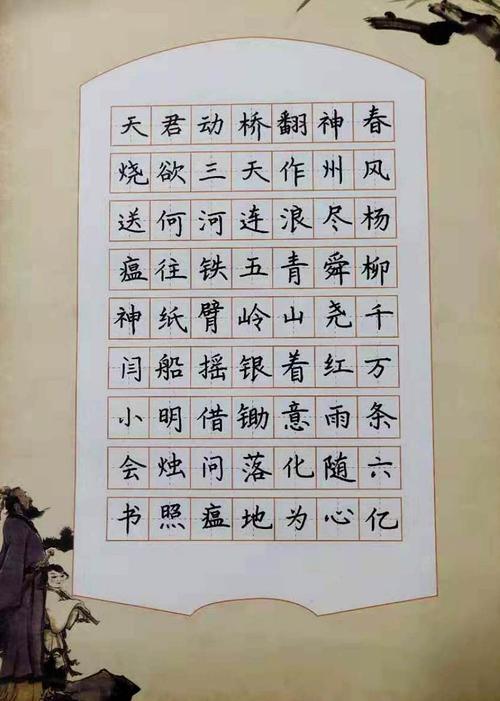 春风杨柳千万条六亿
神州尽舜尧红雨随心
翻作浪青山着意化为
桥天连五岭银锄落地
动三河铁臂摇借问瘟
君欲何往纸船明烛照
天烧送瘟神闫小会书